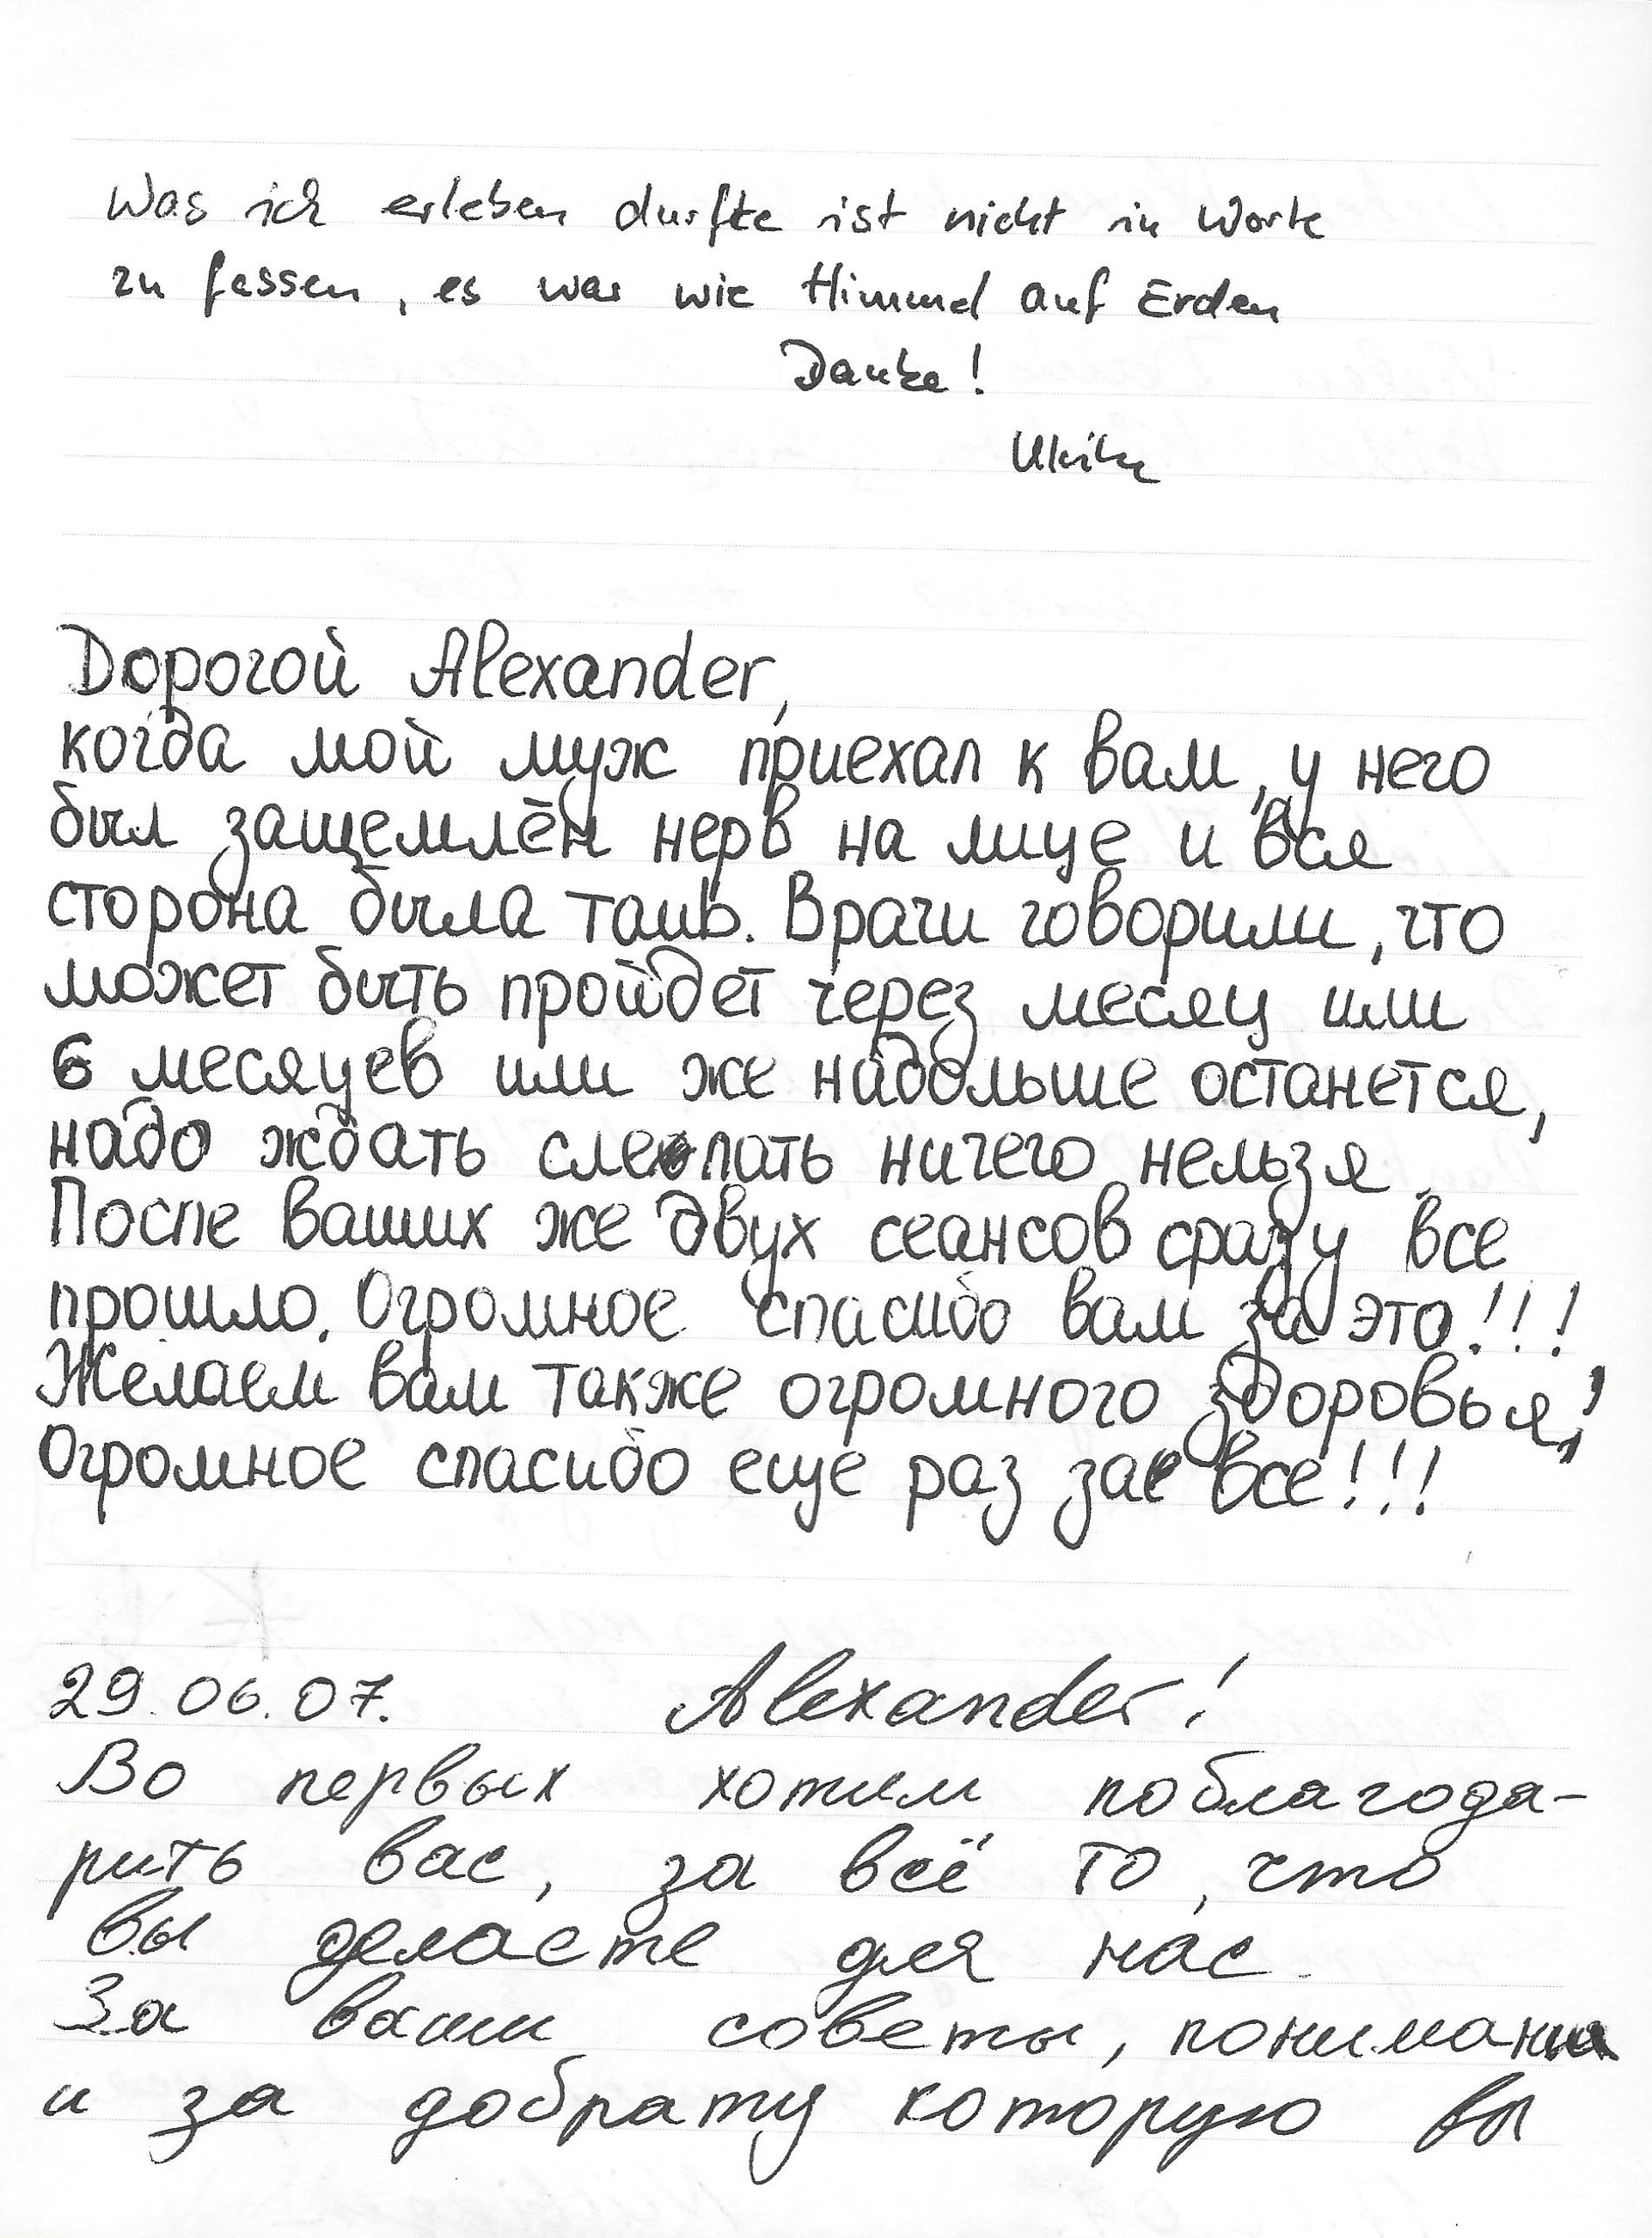 Was ich erleben durfte ist nicht in Worte
zu fassen, es war wie Himmel auf Erden
Danke!
Ulrike
Дорогой Alexander,
когда мой муж приехал к вам, у него
был защемлён нерв на лице и вся
сторона была таиь. Врачи говорили, что
может быть пройдет через месяц или
6 месяцев или же надольше останется,
надо ждать ничего нельзя.
После ваших же двух сеансов сразу все
прошло. Огромное спасибо вам за это!!!
Желаем вам также огромного здоровья!
Огромное спасибо еще раз за все!!!
29.06.07. Alexander!
Во первых хотим поблагода-
рить вас, за всё то, что
вы делаете для нас.
За ваши советы, понимания
и за доброту которую вы